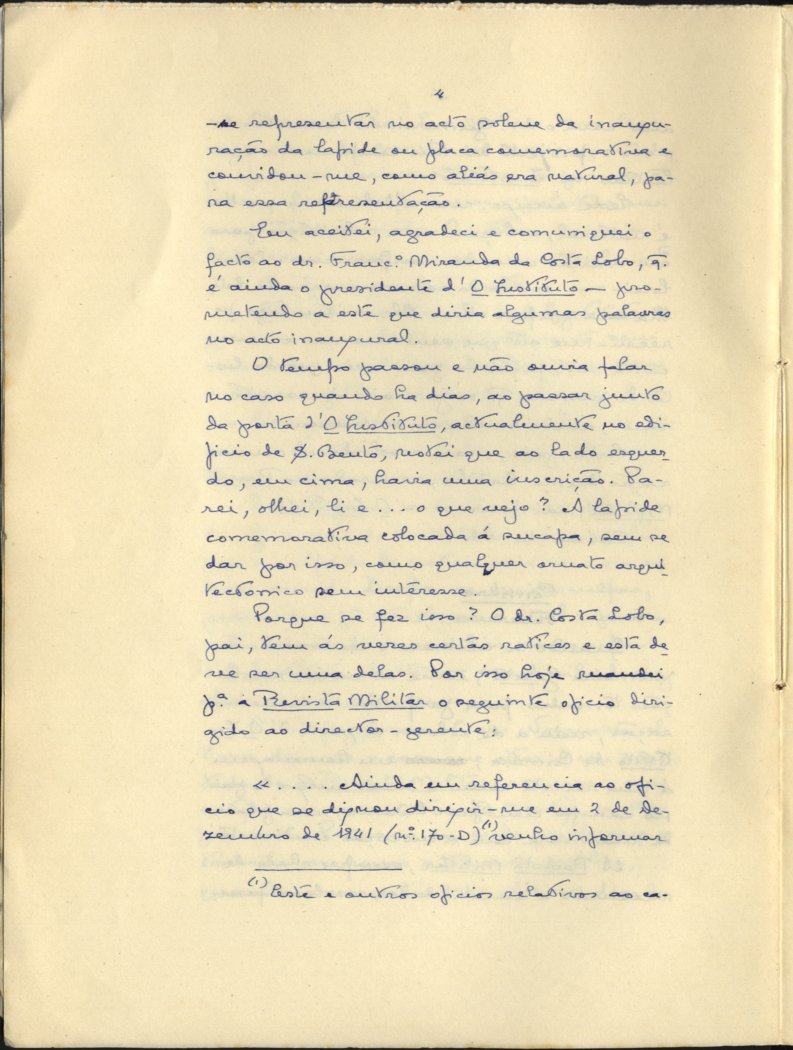 4
-se representar no acto solene da inaugu-
ração da lapide ou placa comemorativa e
convidou-me, como aliás era natural, pa-
ra essa representação.
Eu aceitei, agradeci e comuniquei o
facto ao dr. Franc.º Miranda da Costa Lobo, q.
é ainda o presidente d'O Instituto — pro-
metendo a este que diria algumas palavras
no acto inaugural.
O tempo passou e não ouvia falar
no caso quando ha dias, ao passar junto
da porta d'O Instituto, actualmente no edi-
ficio de S. Bento, notei que ao lado esquer-
do, em cima, havia uma inscrição. Pa-
rei, olhei, li e... o que vejo? A lapide
comemorativa colocada á sucapa, sem se
dar por isso, como qualquer ornato arqui-
tectonico sem interesse.
Porque se fez isso? O dr. Costa Lobo,
pai, tem ás vezes certas ratices e esta de-
ve ser uma delas. Por isso hoje mandei
p.ª a Revista Militar o seguinte oficio diri-
gido ao director-gerente:
«.... Ainda em referencia ao ofi-
cio que se dignou dirigir-me em 2 de de-
zembro de 1941 (n.º 170-D)(1) venho informar
(1) Este e outros oficios relativos ao ca-